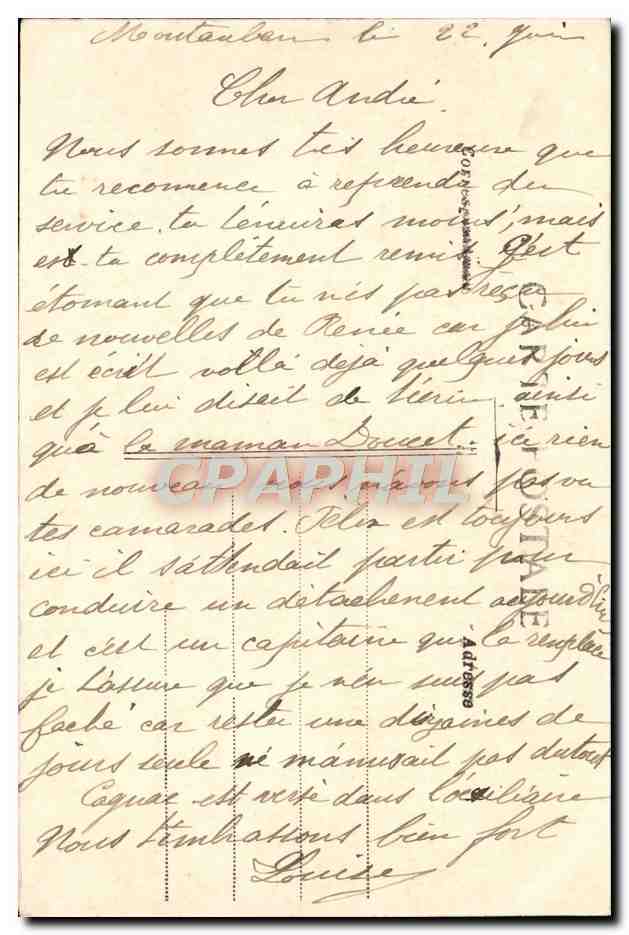 Montauban le 22 Juin
Cher André
Nous sommes très heureuse que
tu recomence à reprendre du
service. tu t'eneuiras moins, mais
est tu complétement remis. C'est
étonant que tu n'es pas reçu
de nouvelles de Renée car
est écrit voila déjà quelques jours
et je lui disait de t'écrire ainsi
qu'à la maman Doucet. ici rien
de nouveau nous n'avons pas vu
tes camarades. Félix est toujours
ici il s'attendait partir pour
conduire un détachement aujourd'hui
et c'est un capitaine qui la remplacé
je t'assure que je n'en suis pas
faché car rester une dizaines de
jours seule ne m'amusait pas dutout
Cognac est versé dans l'auxiliaire
Nous t'embrassons bien fort
Louise
CARTE POSTALE
Adresse
CPAPHIL